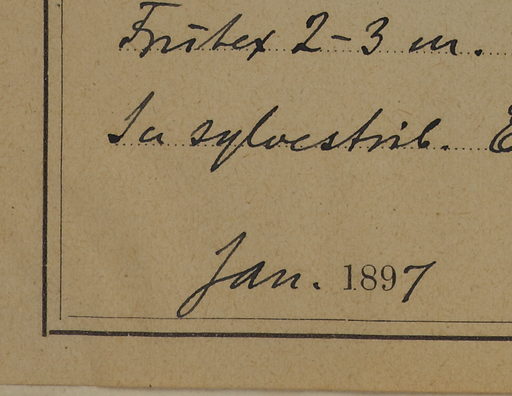 Frutex 2-3 m.
In sylvestrib. E
Jan. 1897